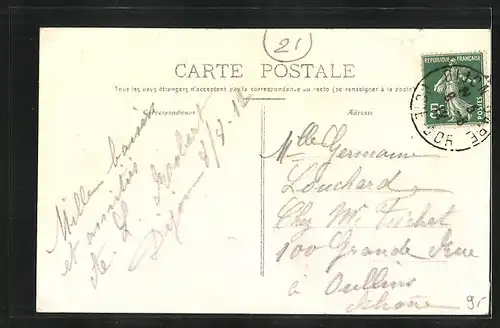 21
CARTE POSTALE
Tous les pays étrangers n'acceptent pas la correspondance au recto (se renseigner à la poste)
Correspondance
Adresse
REPUBLIQUE FRANÇAISE
5c
POSTES
DIJON
CÔTE
Mille baisers
et amitiés
Dijon 8/4-12
Mlle Germaine
Louchard
Chez Mr
100 Grande Rue
à Oullins
Rhône
9.-